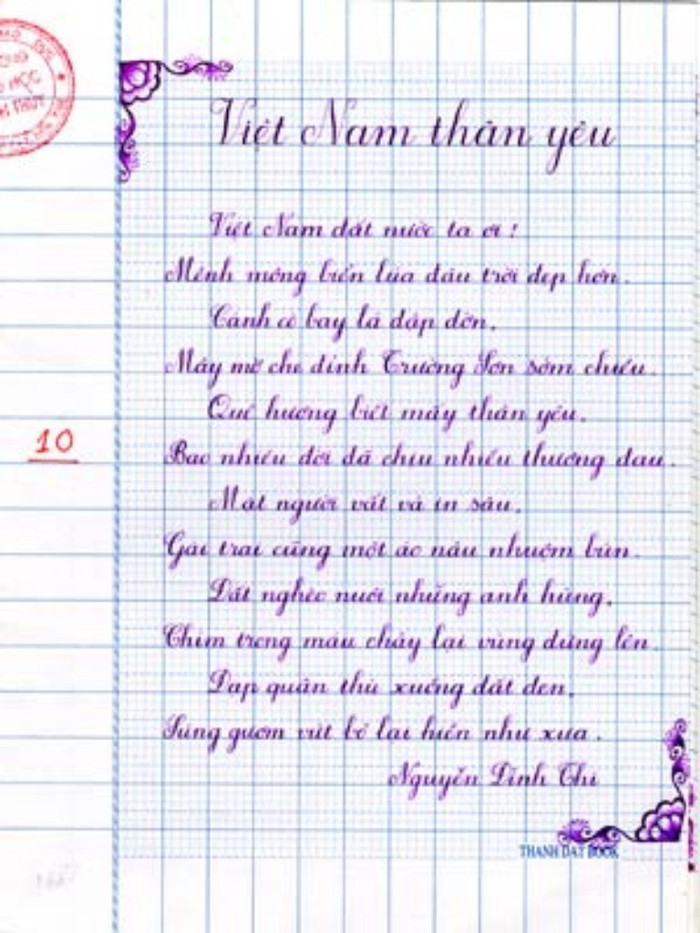 Việt Nam thân yêu
Việt Nam đất nước ta ơi!
Mênh mông biển lúa đâu trời đẹp hơn.
Cánh cò bay lả dập dờn,
Mây mờ che đỉnh Trường Sơn sớm chiều.
Quê hương biết mấy thân yêu,
Bao nhiêu đời đã chịu nhiều thương đau.
Mặt người vất vả in sâu,
Gái trai cũng một áo nâu nhuộm bùn.
Đất nghèo nuôi những anh hùng,
Chìm trong máu chảy lại vùng đứng lên.
Đạp quân thù xuống đất đen,
Súng gươm vứt bỏ lại hiền như xưa.
Nguyễn Đình Thi
10
THANH ĐẠT BOOK